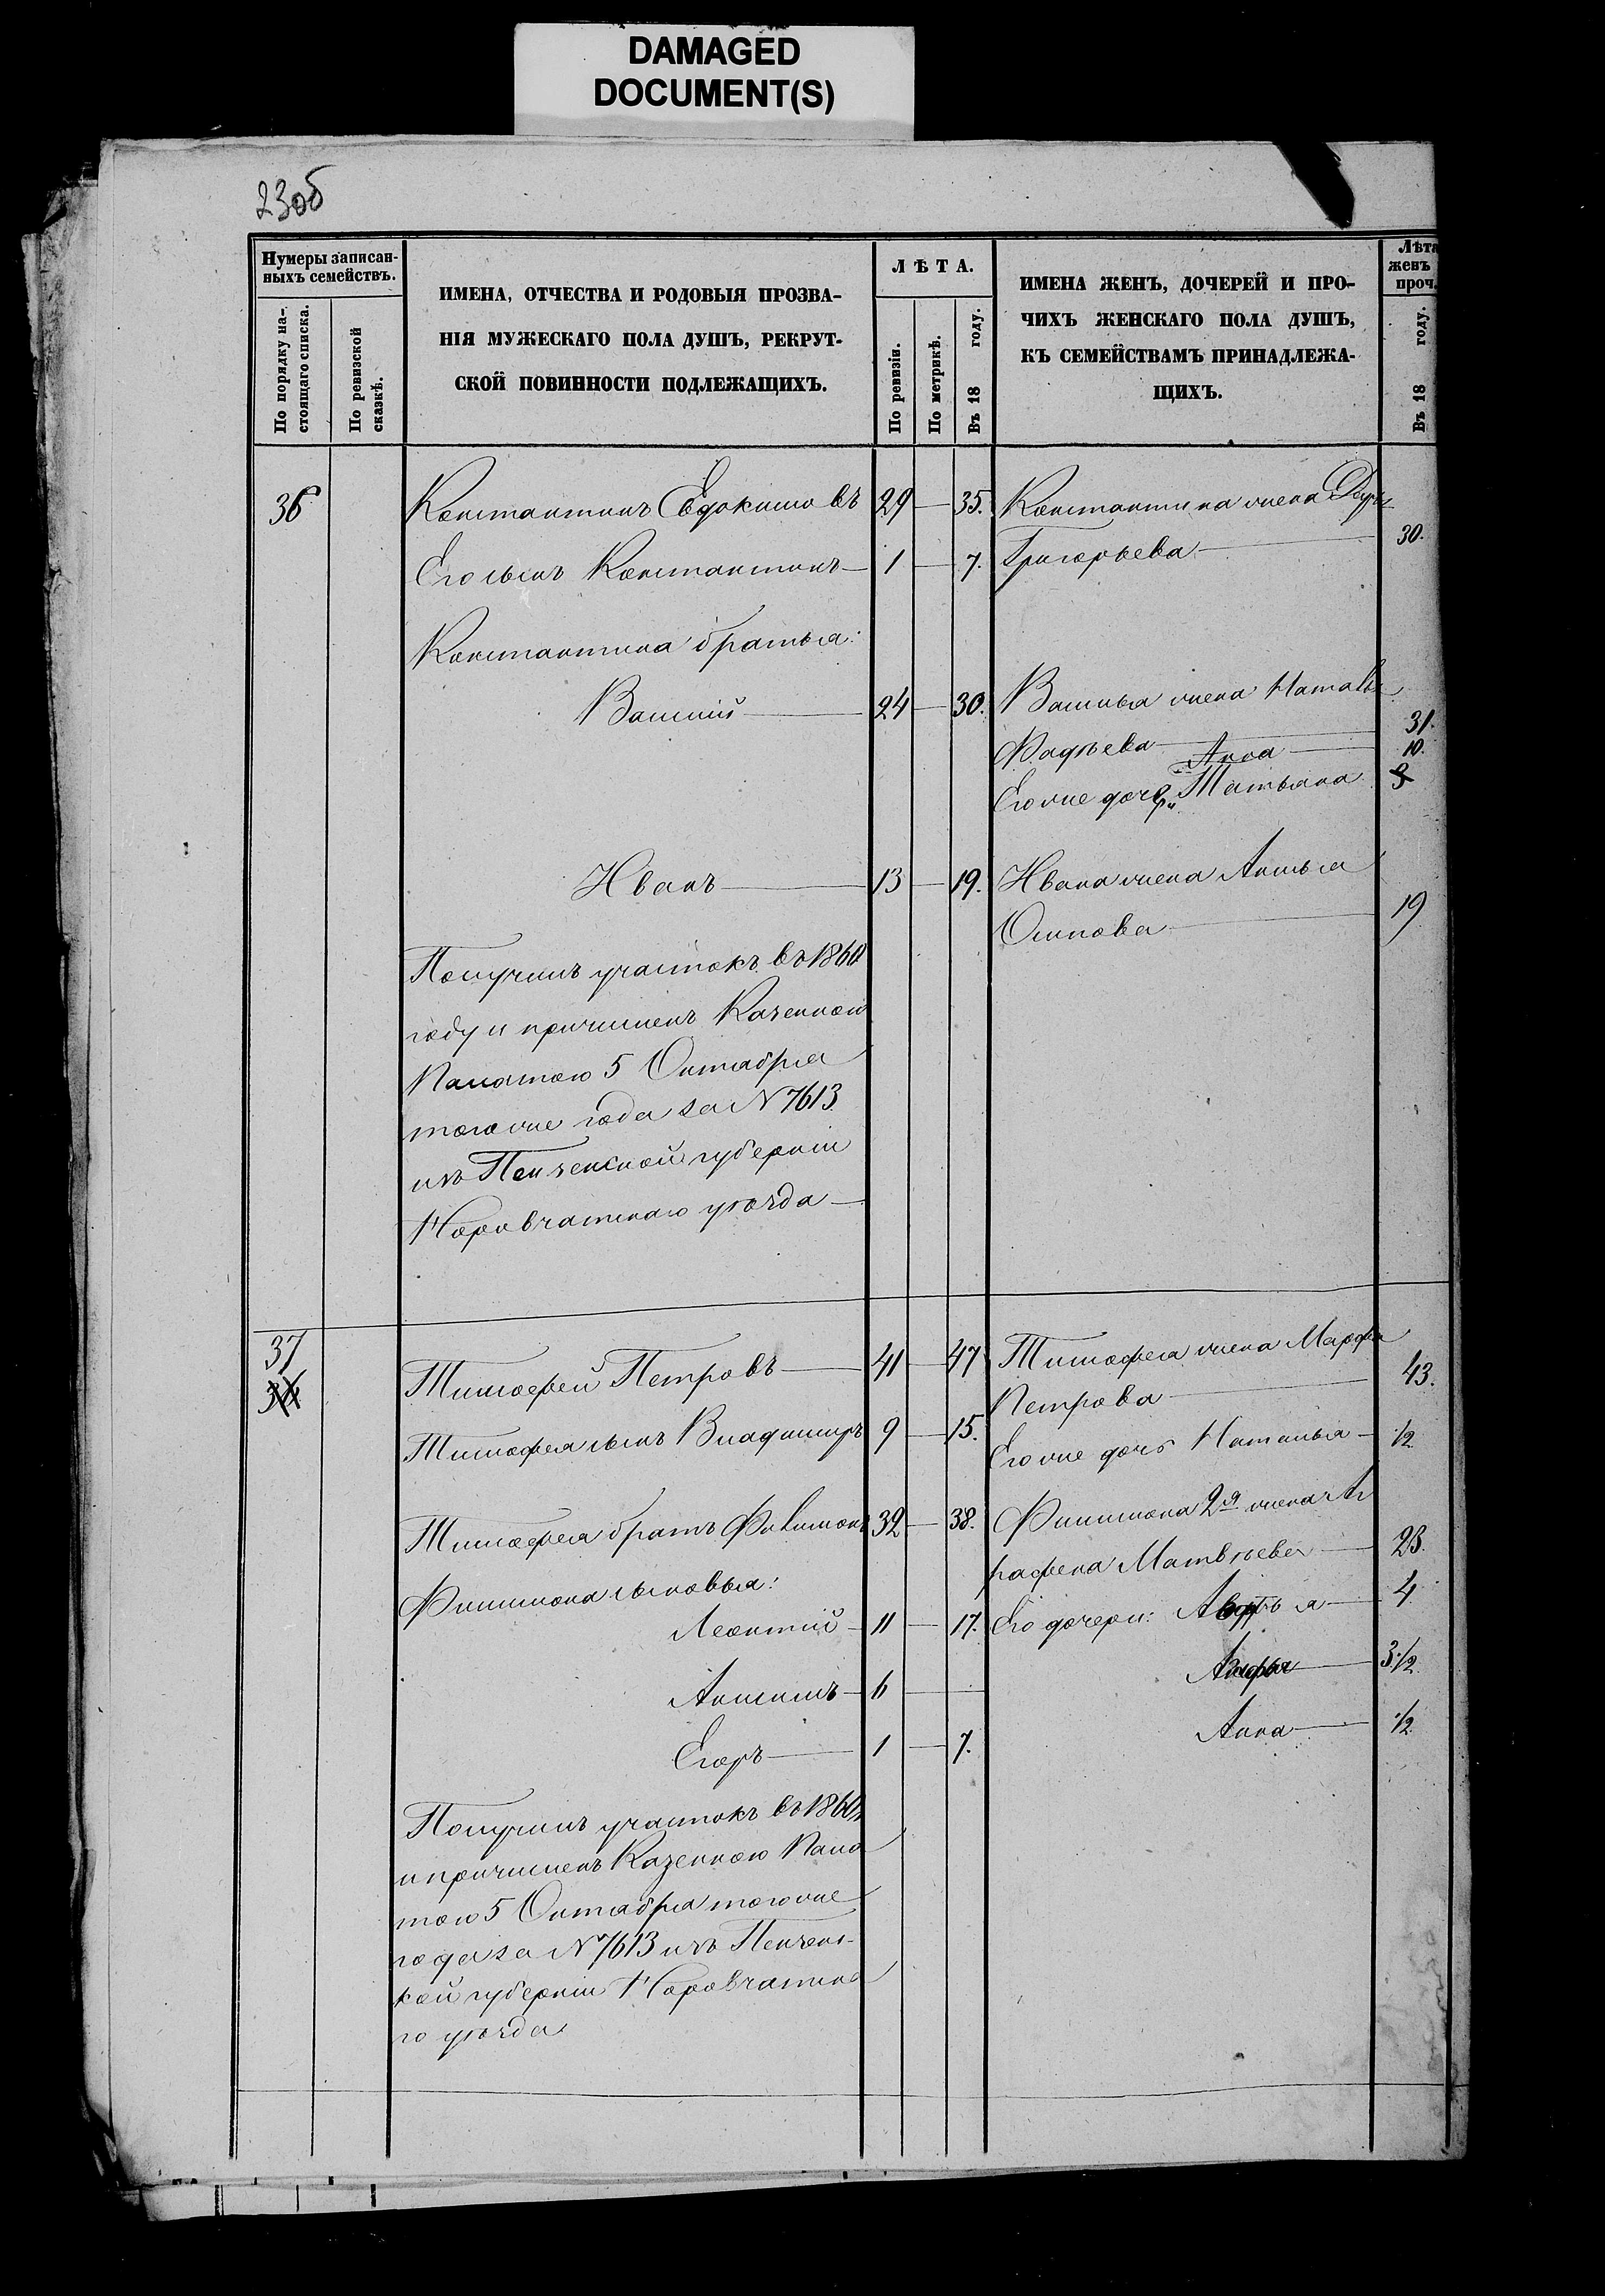 DAMAGED
DOCUMENT(S)
23об
Нумеры записан-
ныхъ семействъ.
По порядку на-
стоящаго списка.
По ревизской
сказкѣ.
ИМЕНА, ОТЧЕСТВА И РОДОВЫЯ ПРОЗВА-
НІЯ МУЖЕСКАГО ПОЛА ДУШЪ, РЕКРУТ-
СКОЙ ПОВИННОСТИ ПОДЛЕЖАЩИХЪ.
ЛѢТА.
По ревизіи.
По метрикѣ.
Въ 18 году.
ИМЕНА ЖЕНЪ, ДОЧЕРЕЙ И ПРО-
ЧИХЪ ЖЕНСКАГО ПОЛА ДУШЪ,
КЪ СЕМЕЙСТВАМЪ ПРИНАДЛЕЖА-
ЩИХЪ.
Лѣта
женъ
проч.
Въ 18 году.
36 Константинъ Евдокимовъ 29 — 35. Константина жена Дарья
Григорьева 30.
Его сынъ Константинъ — 1 — 7.
Константина братья:
Василій — 24 — 30. Василья жена Наталья
Фадѣева 31.
Анна 10.
Его же дочери Татьяна 8
Иванъ — 13 — 19. Ивана жена Аксинья
Осипова 19
Получилъ участокъ въ 1860
году и причисленъ Казенною
Палатою 5 Октября
того же года за N 7613
изъ Пензенской губерніи
Наровчатскаго уѣзда —
37
Тимофей Петровъ — 41 — 47 Тимофея жена Марфа
Петрова 43.
Тимофея сынъ Владимиръ 9 — 15.
Его же дочь Наталья — 1/2
Тимофея братъ Филимонъ 32 — 38. Филимона 2я жена Аг
рафена Матвѣева — 23.
Филимона сыновья:
Леонтій — 11 — 17. Его дочери: 4
3 1/2
Акимъ — 6 —
Анна — 1/2
Егоръ — 1 — 7.
Получилъ участокъ въ 1860
и причисленъ Казенною Пала
тою 5 Октября того же
года за N 7613 изъ Пензенс-
кой губерніи Наровчатска
го уѣзда